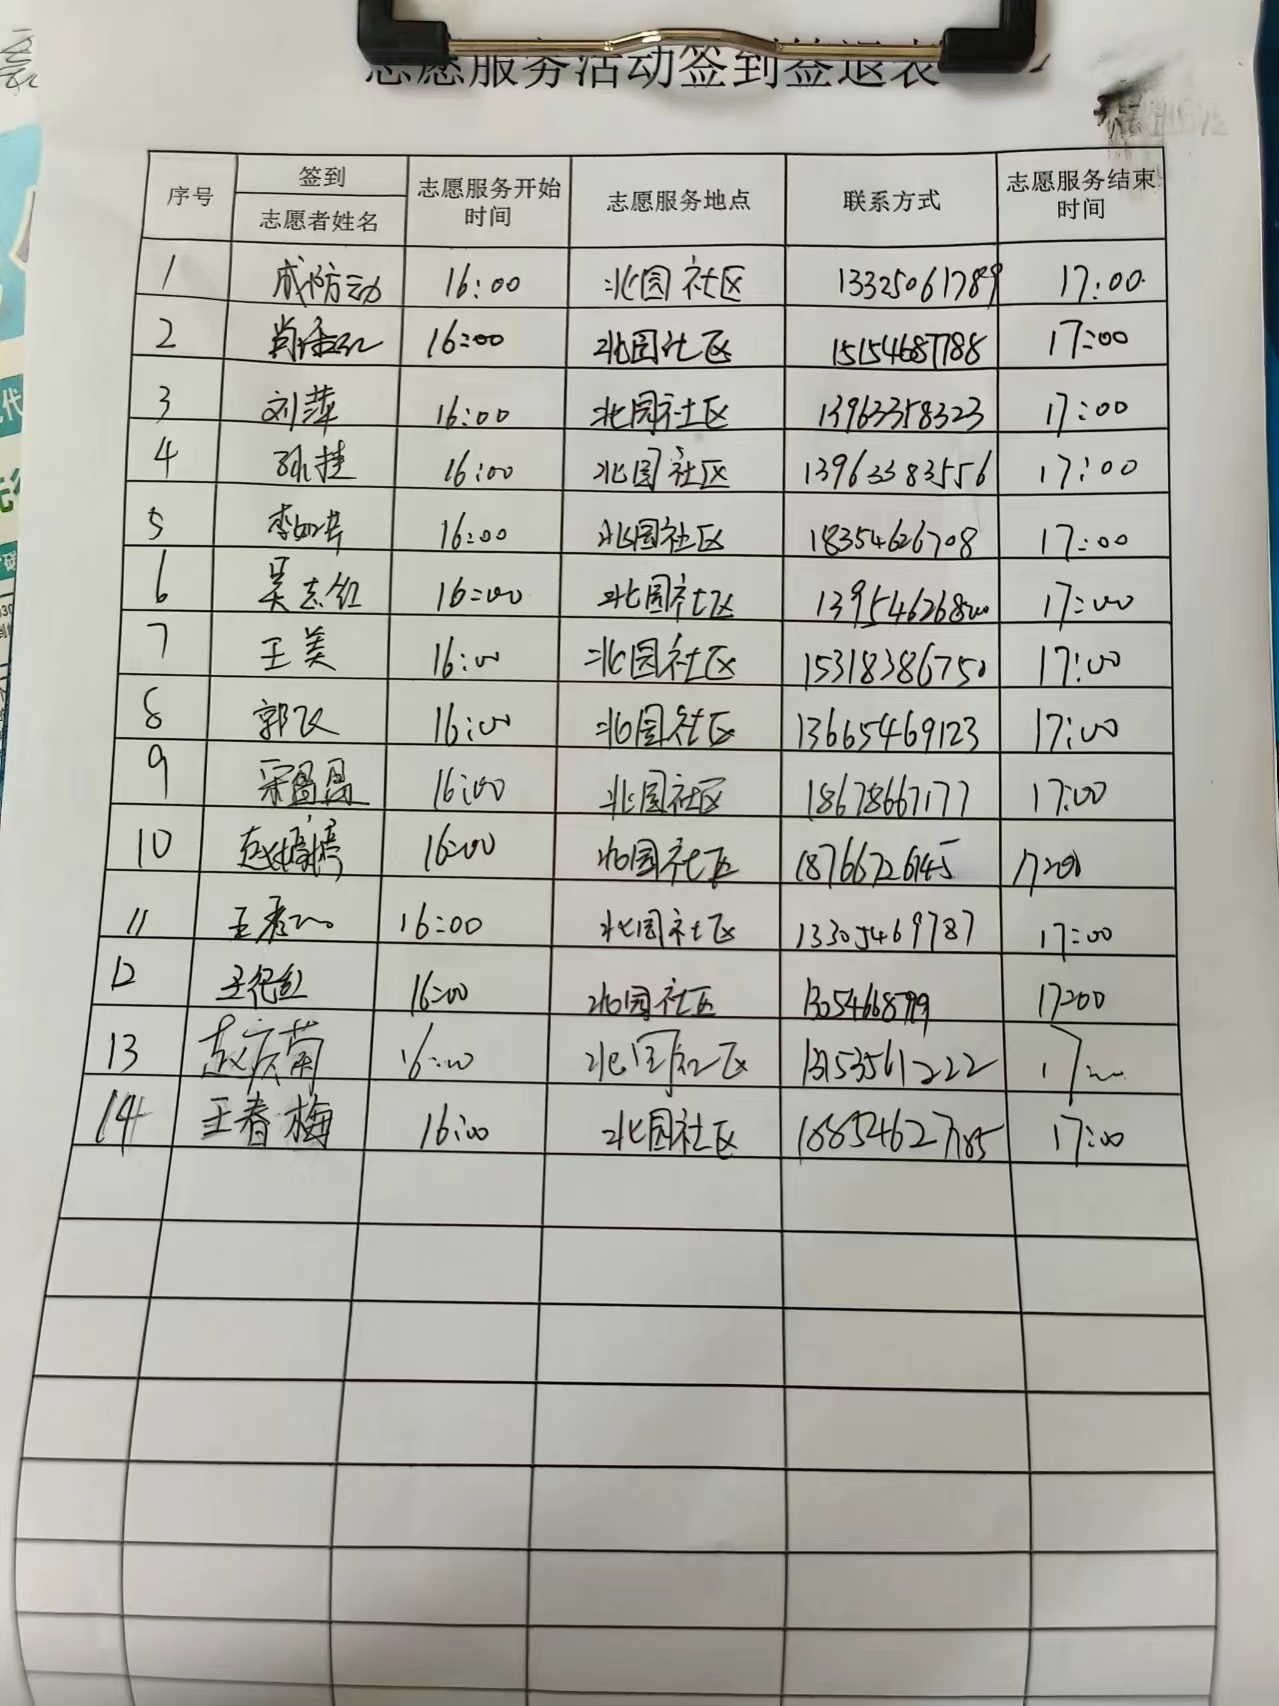 志愿服务活动签到签退表
序号 签到 志愿者姓名 志愿服务开始时间 志愿服务地点 联系方式 志愿服务结束时间
1 成防动 16:00 北园社区 13325061789 17:00
2 16:00 北园社区 15154687788 17:00
3 刘萍 16:00 北园社区 13963358323 17:00
4 孙桂 16:00 北园社区 13963383556 17:00
5 16:00 北园社区 18354626708 17:00
6 吴志红 16:00 北园社区 13954626800 17:00
7 王美 16:00 北园社区 15318386750 17:00
8 郭飞 16:00 北园社区 13665469123 17:00
9 宋晶晶 16:00 北园社区 18678667177 17:00
10 赵婷婷 16:00 北园社区 18766726145 17:00
11 16:00 北园社区 13305469787 17:00
12 王纪红 16:00 北园社区 17:00
13 赵庆菊 16:00 北园社区 13153561222 17:00
14 王春梅 16:00 北园社区 18854627785 17:00